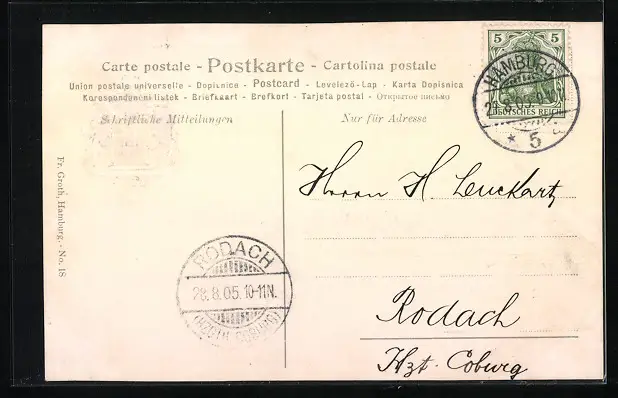 Carte postale - Postkarte - Cartolina postale
Union postale universelle - Dopisnice - Postcard - Levelező-Lap - Karta Dopisnica
Korespondenční lístek - Briefkaart - Brefkort - Tarjeta postal - Открытое письмо
Schriftliche Mitteilungen
Nur für Adresse
5 5
DEUTSCHES REICH
HAMBURG
* 5
Fr. Groth, Hamburg. - No. 18
Herrn H. Leuckart
RODACH
28.8.05.10-11N.
(HZGTH. COBURG)
Rodach
Hzt. Coburg